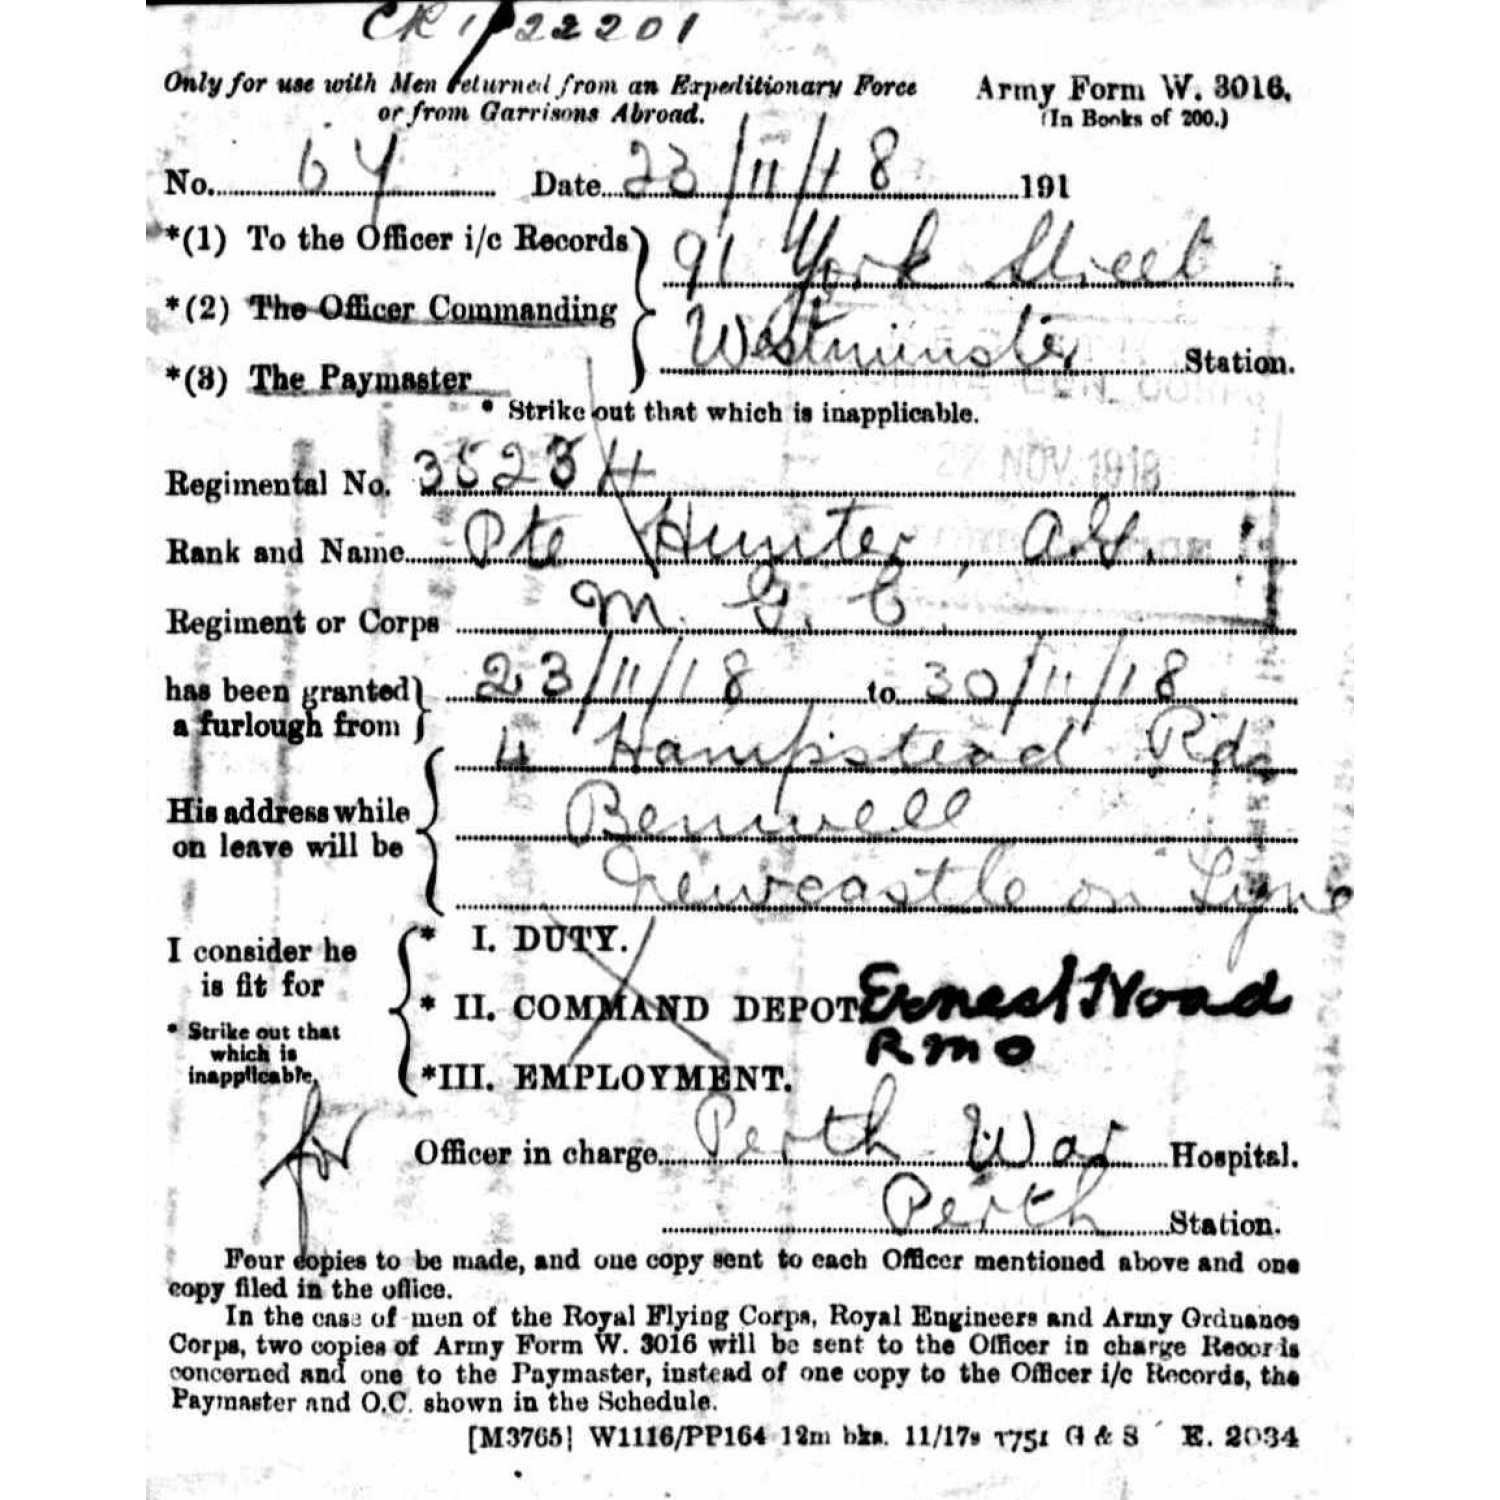 CR 1/22201
Only for use with Men returned from an Expeditionary Force
or from Garrisons Abroad.
Army Form W. 3016.
(In Books of 200.)
No. 64 Date 23/11/18 191
*(1) To the Officer i/c Records
91 York Street
*(2) The Officer Commanding
Westminster Station.
*(3) The Paymaster
* Strike out that which is inapplicable.
27 NOV. 1918
Regimental No. 35234
Rank and Name Pte Hunter, A.G.
Regiment or Corps M. G. C.
has been granted
a furlough from
23/11/18 to 30/11/18
4 Hampstead Rd
His address while
on leave will be
Benwell
Newcastle on Tyne
I consider he
is fit for
* Strike out that
which is
inapplicable.
* I. DUTY.
* II. COMMAND DEPOT
*III. EMPLOYMENT.
Ernest Woad
RMO
for
Officer in charge Perth War Hospital.
Perth Station.
Four copies to be made, and one copy sent to each Officer mentioned above and one
copy filed in the office.
In the case of men of the Royal Flying Corps, Royal Engineers and Army Ordnance
Corps, two copies of Army Form W. 3016 will be sent to the Officer in charge Records
concerned and one to the Paymaster, instead of one copy to the Officer i/c Records, the
Paymaster and O.C. shown in the Schedule.
[M3765] W1116/PP164 12m bks. 11/17s 1751 G & S E. 2034